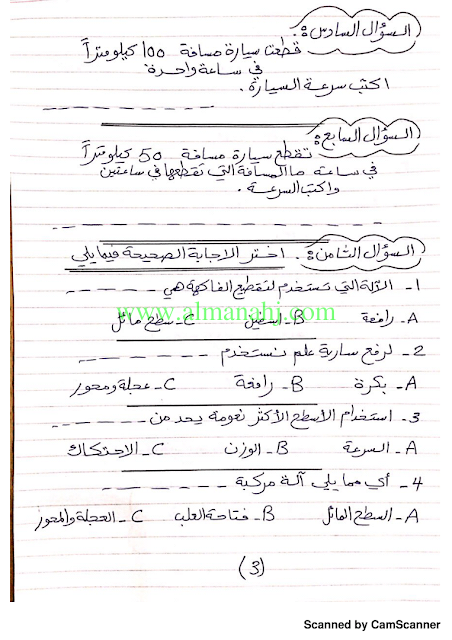 السؤال السادس: قطعت سيارة مسافة 100 كيلومتراً
في ساعة واحدة
اكتب سرعة السيارة.
السؤال السابع: تقطع سيارة مسافة 50 كيلومتراً
في ساعة ما المسافة التي تقطعها في ساعتين
واكتب السرعة.
السؤال الثامن: اختر الاجابة الصحيحة فيما يلي
1- الآلة التي تستخدم لتقطيع الفاكهة هي
www.almanahj.com
A- رافعة B- اسفين C- سطح مائل
2- لرفع سارية علم نستخدم
A- بكرة B- رافعة C- عجلة ومحور
3- استخدام الأسطح الأكثر نعومة يحد من
A- السرعة B- الوزن C- الاحتكاك
4- أي مما يلي آلة مركبة
A- السطح المائل B- فتاحة العلب C- العجلة والمحور
(3)
Scanned by CamScanner